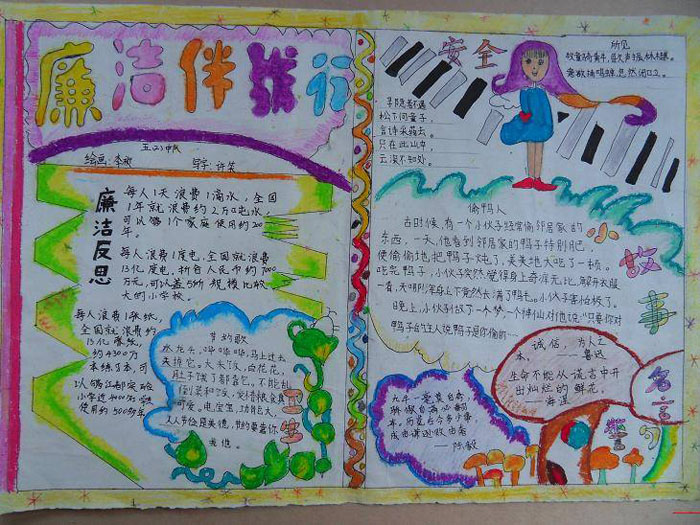 廉洁伴我行
五(2)中队
绘画:李爽 写字:许笑
廉洁反思
每人1天浪费1滴水,全国
1年就浪费约2万吨水,
可以够1个家庭使用约200
年。
每人浪费1度电,全国就浪费
13亿度电,折合人民币约7000
万元,可以盖5所规模比较
大的小学校。
每人浪费1张纸,
全国就浪费约
13亿张纸,
约4300万
本练习本,可
以够江都实验
小学近4000名学生
使用约500多年
节约歌
水龙头,哗哗哗,马上过去
关掉它。大米饭,白花花,
肚子饿了都靠它,不能乱
倒菜和饭,爱惜粮食真
可爱。电宝宝,功能大,
人人节俭是美德,节约要靠你
我他。
安全
寻隐者不遇
松下问童子,
言师采药去。
只在此山中,
云深不知处。
所见
牧童骑黄牛,歌声振林樾。
意欲捕鸣蝉,忽然闭口立。
小故事
偷鸭人
古时候,有一个小伙子经常偷邻居家的
东西,一天,他看到邻居家的鸭子特别肥,
便偷偷地把鸭子炖了,美美地大吃了一顿。
吃完鸭子,小伙子突然觉得身上奇痒无比,解开衣服
一看,天哪!浑身上下竟然长满了鸭毛。小伙子害怕极了。
晚上,小伙子做了一个梦,一个神仙对他说:“只要你对
鸭子的主人说鸭子是你偷的……
名言句
诚信,为人之
本。——鲁迅
生命不能从谎言中开
出灿烂的鲜花。
——海涅
——陈毅